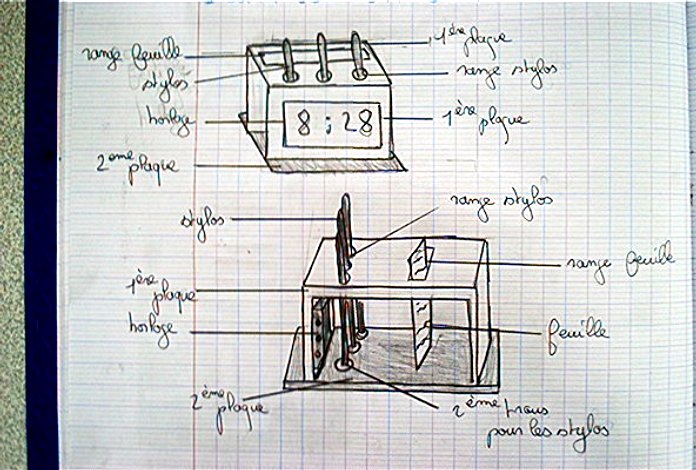 range feuille
1ère plaque
stylos
range stylos
horloge
8 : 28
1ère plaque
2eme plaque
stylos
range stylos
range feuille
1ère plaque
horloge
feuille
2ème plaque
2ème trous
pour les stylos